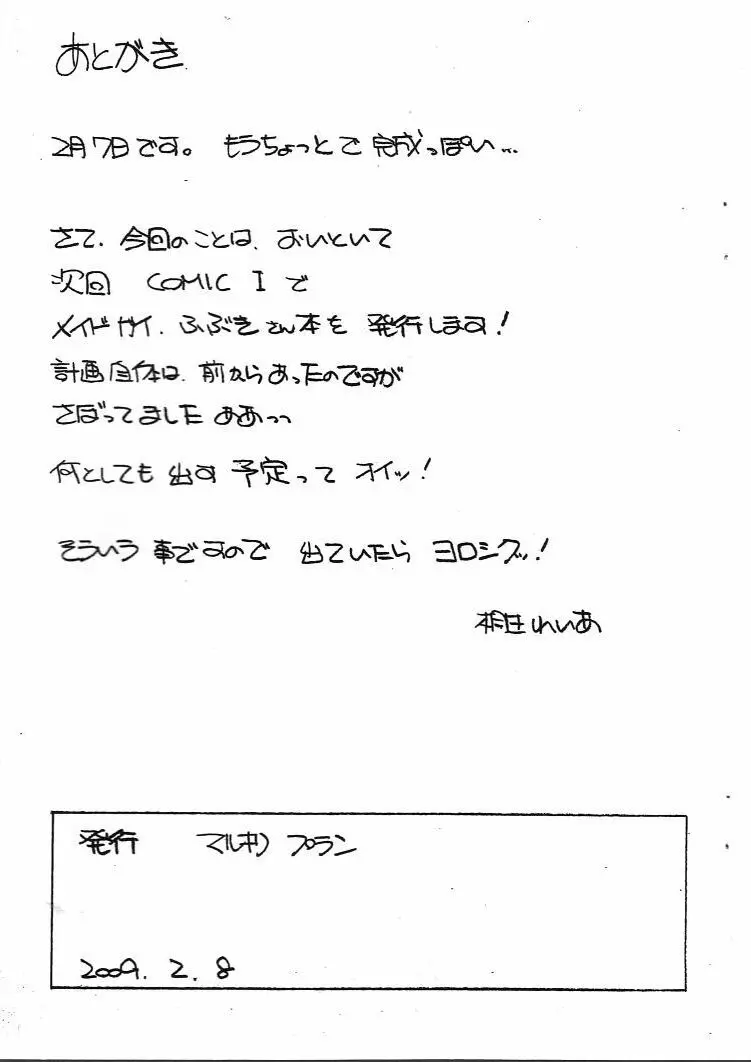 あとがき
2月7日です。もうちょっとで完成っぽい...
さて、今回のことは、おいといて
次回 COMIC I で
メイドガイ、ふぶきさん本を発行します!
計画自体は、前からあったのですが
さぼってました ああっっ
何としても出す予定って オイッ!
そういう事ですので 出ていたら ヨロシクッ!
れいあ
発行 マルキノ プラン
2009. 2. 8